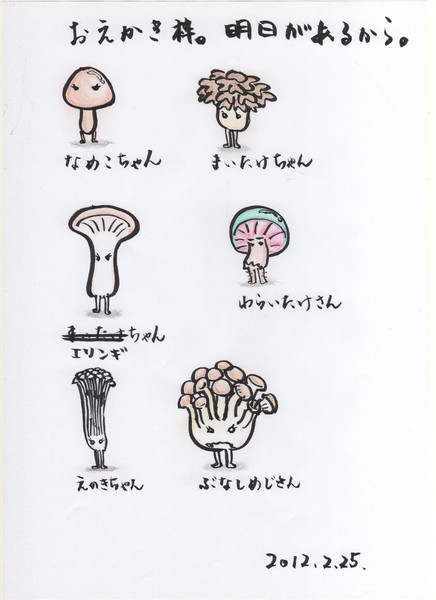 おえかき粋。明日があるから。
なめこちゃん
まいたけちゃん
わらいたけさん
ちゃん
エリンギ
えのきちゃん
ぶなしめじさん
2012.2.25.